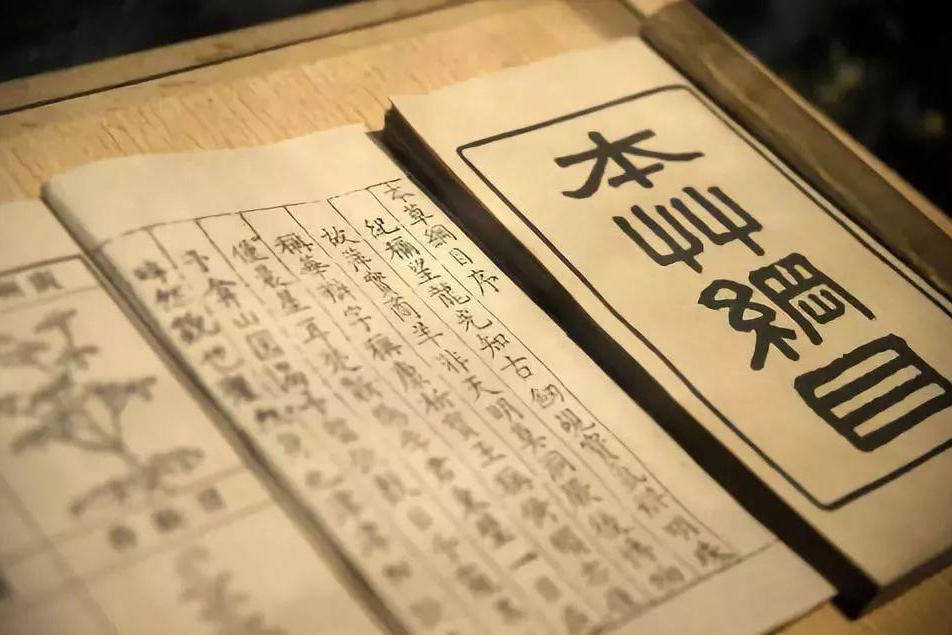 本草綱目
本草綱目序
紀稱望龍光知古劒覘寶氣辨明珠
故萍實商羊非天明莫洞厥後博物
稱華辯字稱康析寶玉稱倚頓亦
僅晨星耳楚蘄陽李君東璧一日
予弇山園謁予留飲數日予
睟然貌也癯然